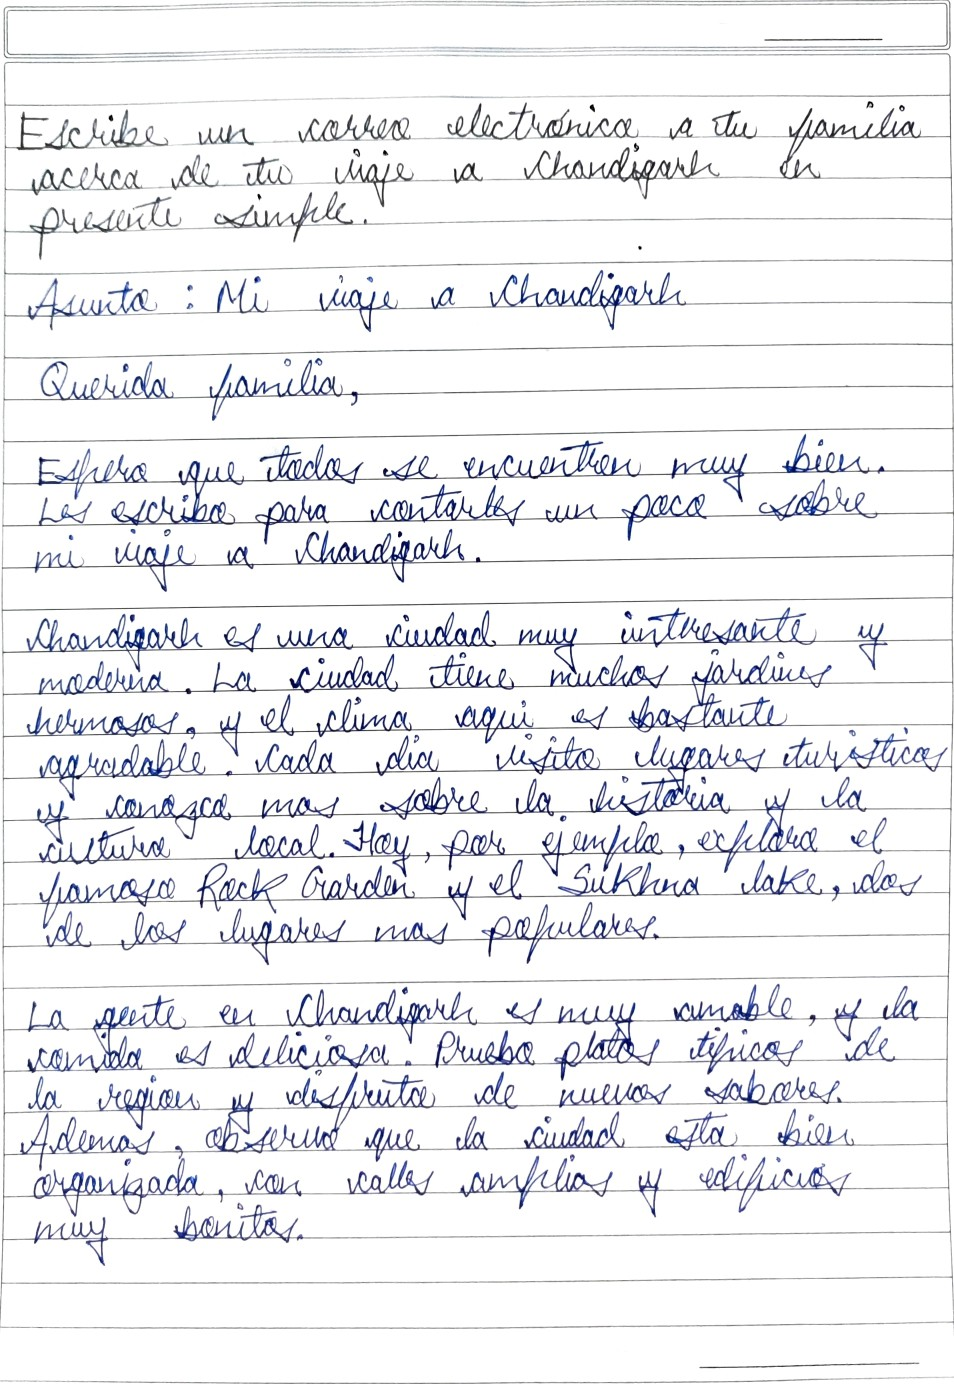 Escribe un correo electrónico a tu familia
acerca de tu viaje a Chandigarh en
presente simple.
Asunto : Mi viaje a Chandigarh
Querida familia,
Espero que todos se encuentren muy bien.
Les escribo para contarles un poco sobre
mi viaje a Chandigarh.
Chandigarh es una ciudad muy interesante y
moderna. La ciudad tiene muchos jardines
hermosos, y el clima aqui es bastante
agradable. Cada día visito lugares turísticos
y conozco mas sobre la historia y la
cultura local. Hoy, por ejemplo, exploro el
famoso Rock Garden y el Sukhna lake, dos
de los lugares mas populares.
La gente en Chandigarh es muy amable, y la
comida es deliciosa. Pruebo platos típicos de
la region y disfruto de nuevos sabores.
Ademas, observo que la ciudad esta bien
organizada, con calles amplias y edificios
muy bonitos.